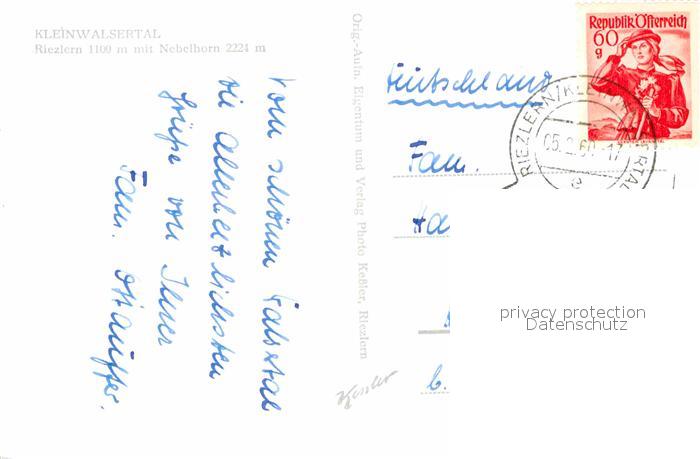 KLEINWALSERTAL
Riezlern 1100 m mit Nebelhorn 2224 m
Vom schönen Walsertal
die allerherzlichsten
Grüße von Ihrer
Fam.
Orig.-Aufn. Eigentum und Verlag Photo Keßler, Riezlern
Kessler
Republik Österreich
60
g
RIEZLERN/KLEINWALSERTAL
05.2.60-17
a
Deutschland
Fam.
Ha
b.
privacy protection
Datenschutz